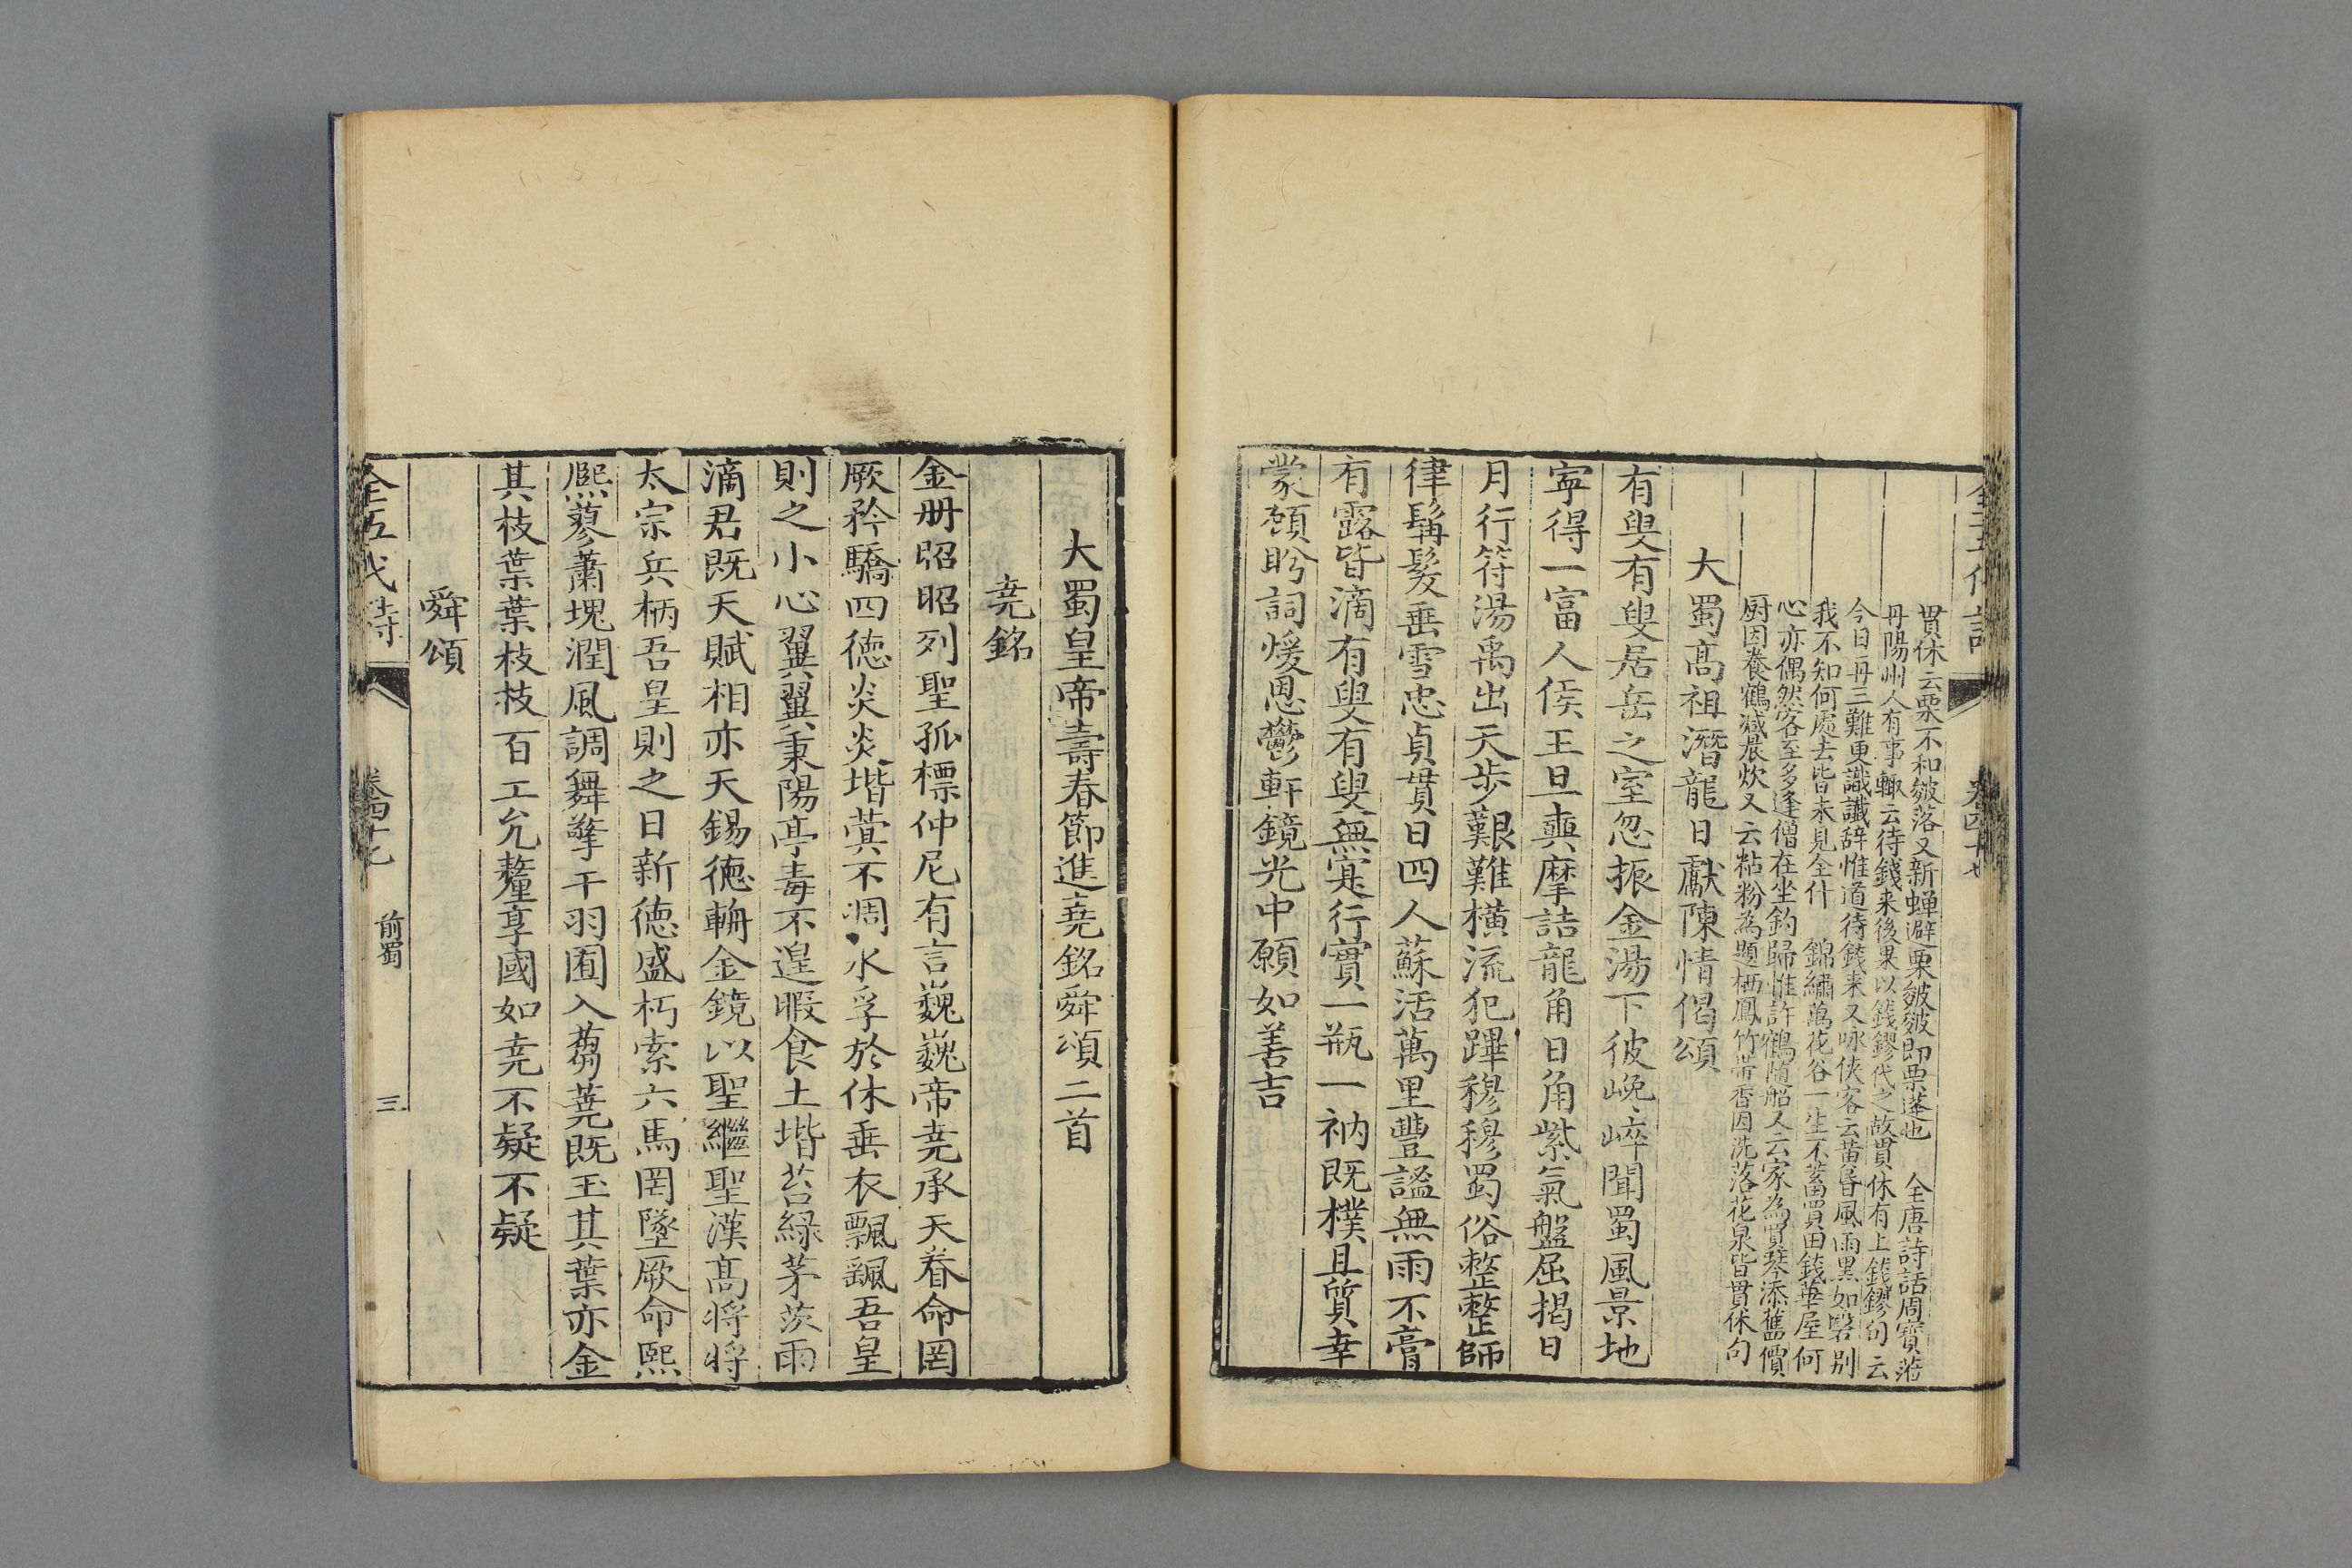 全五代詩 卷四十七
貫休云栗不和皴落又新蟬避栗皴皴即栗蓬也 全唐詩話周寶蒞
丹陽州人有事輙云待錢来後果以錢鏐代之故貫休有上錢鏐句云
今日再三難更識讖辞惟道待錢来又咏俠客云黄昬風雨黒如磐别
我不知何處去皆未見全什 錦繡萬花谷一生不蓄買田錢華屋何
心亦偶然客至多逢僧在坐釣歸惟許鶴随船又云家為買琴添舊價
厨因養鶴减晨炊又云粘粉為題栖鳳竹帯香因洗落花泉皆貫休句
大蜀髙祖潛龍日獻陳情偈頌
有叟有叟居岳之室忽振金湯下彼巉崪聞蜀風景地
寧得一富人侯王旦奭摩詰龍角日角紫氣盤屈揭日
月行符湯禹出天步艱難橫流犯蹕穆穆蜀俗整整師
律髯髮垂雪忠貞貫日四人蘇活萬里豐謐無雨不膏
有露皆滴有叟有叟無寔行實一瓶一衲既樸且質幸
蒙顧盻詞煖恩鬱軒鏡光中願如善吉
大蜀皇帝壽春節進堯銘舜頌二首
堯銘
金册昭昭列聖孤標仲尼有言巍巍帝堯承天眷命罔
厥矜驕四徳炎炎堦蓂不凋永孚於休垂衣飄飖吾皇
則之小心翼翼秉陽亭毒不遑暇食土堦苔緑茅茨雨
滴君既天賦相亦天錫徳輶金鏡以聖繼聖漢髙将将
太宗兵柄吾皇則之日新徳盛朽索六馬罔墜厥命熙
熙蓼蕭塊潤風調舞擎干羽囿入蒭蕘既玉其葉亦金
其枝枝葉葉枝枝百工允釐享國如堯不疑不疑
舜頌
全五代詩 卷四十七 前蜀 三